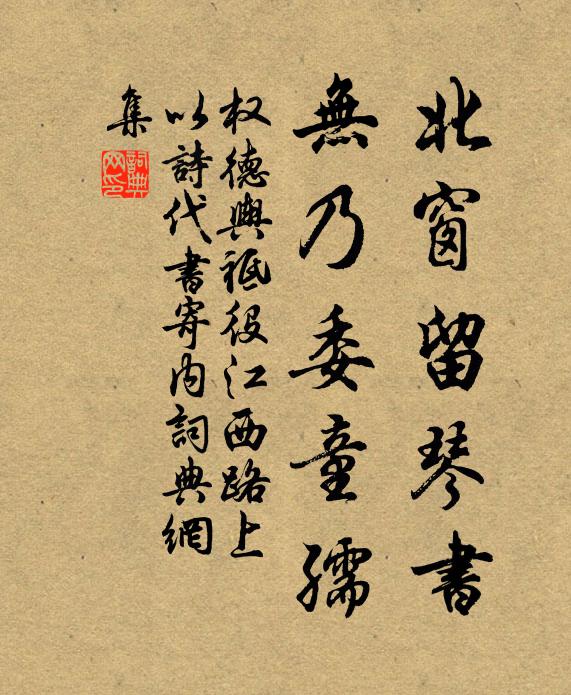 北窗留琴書
無乃委童孺
权德輿祗役江西路上
以詩代書寄内詞典網
集
詞典
网印